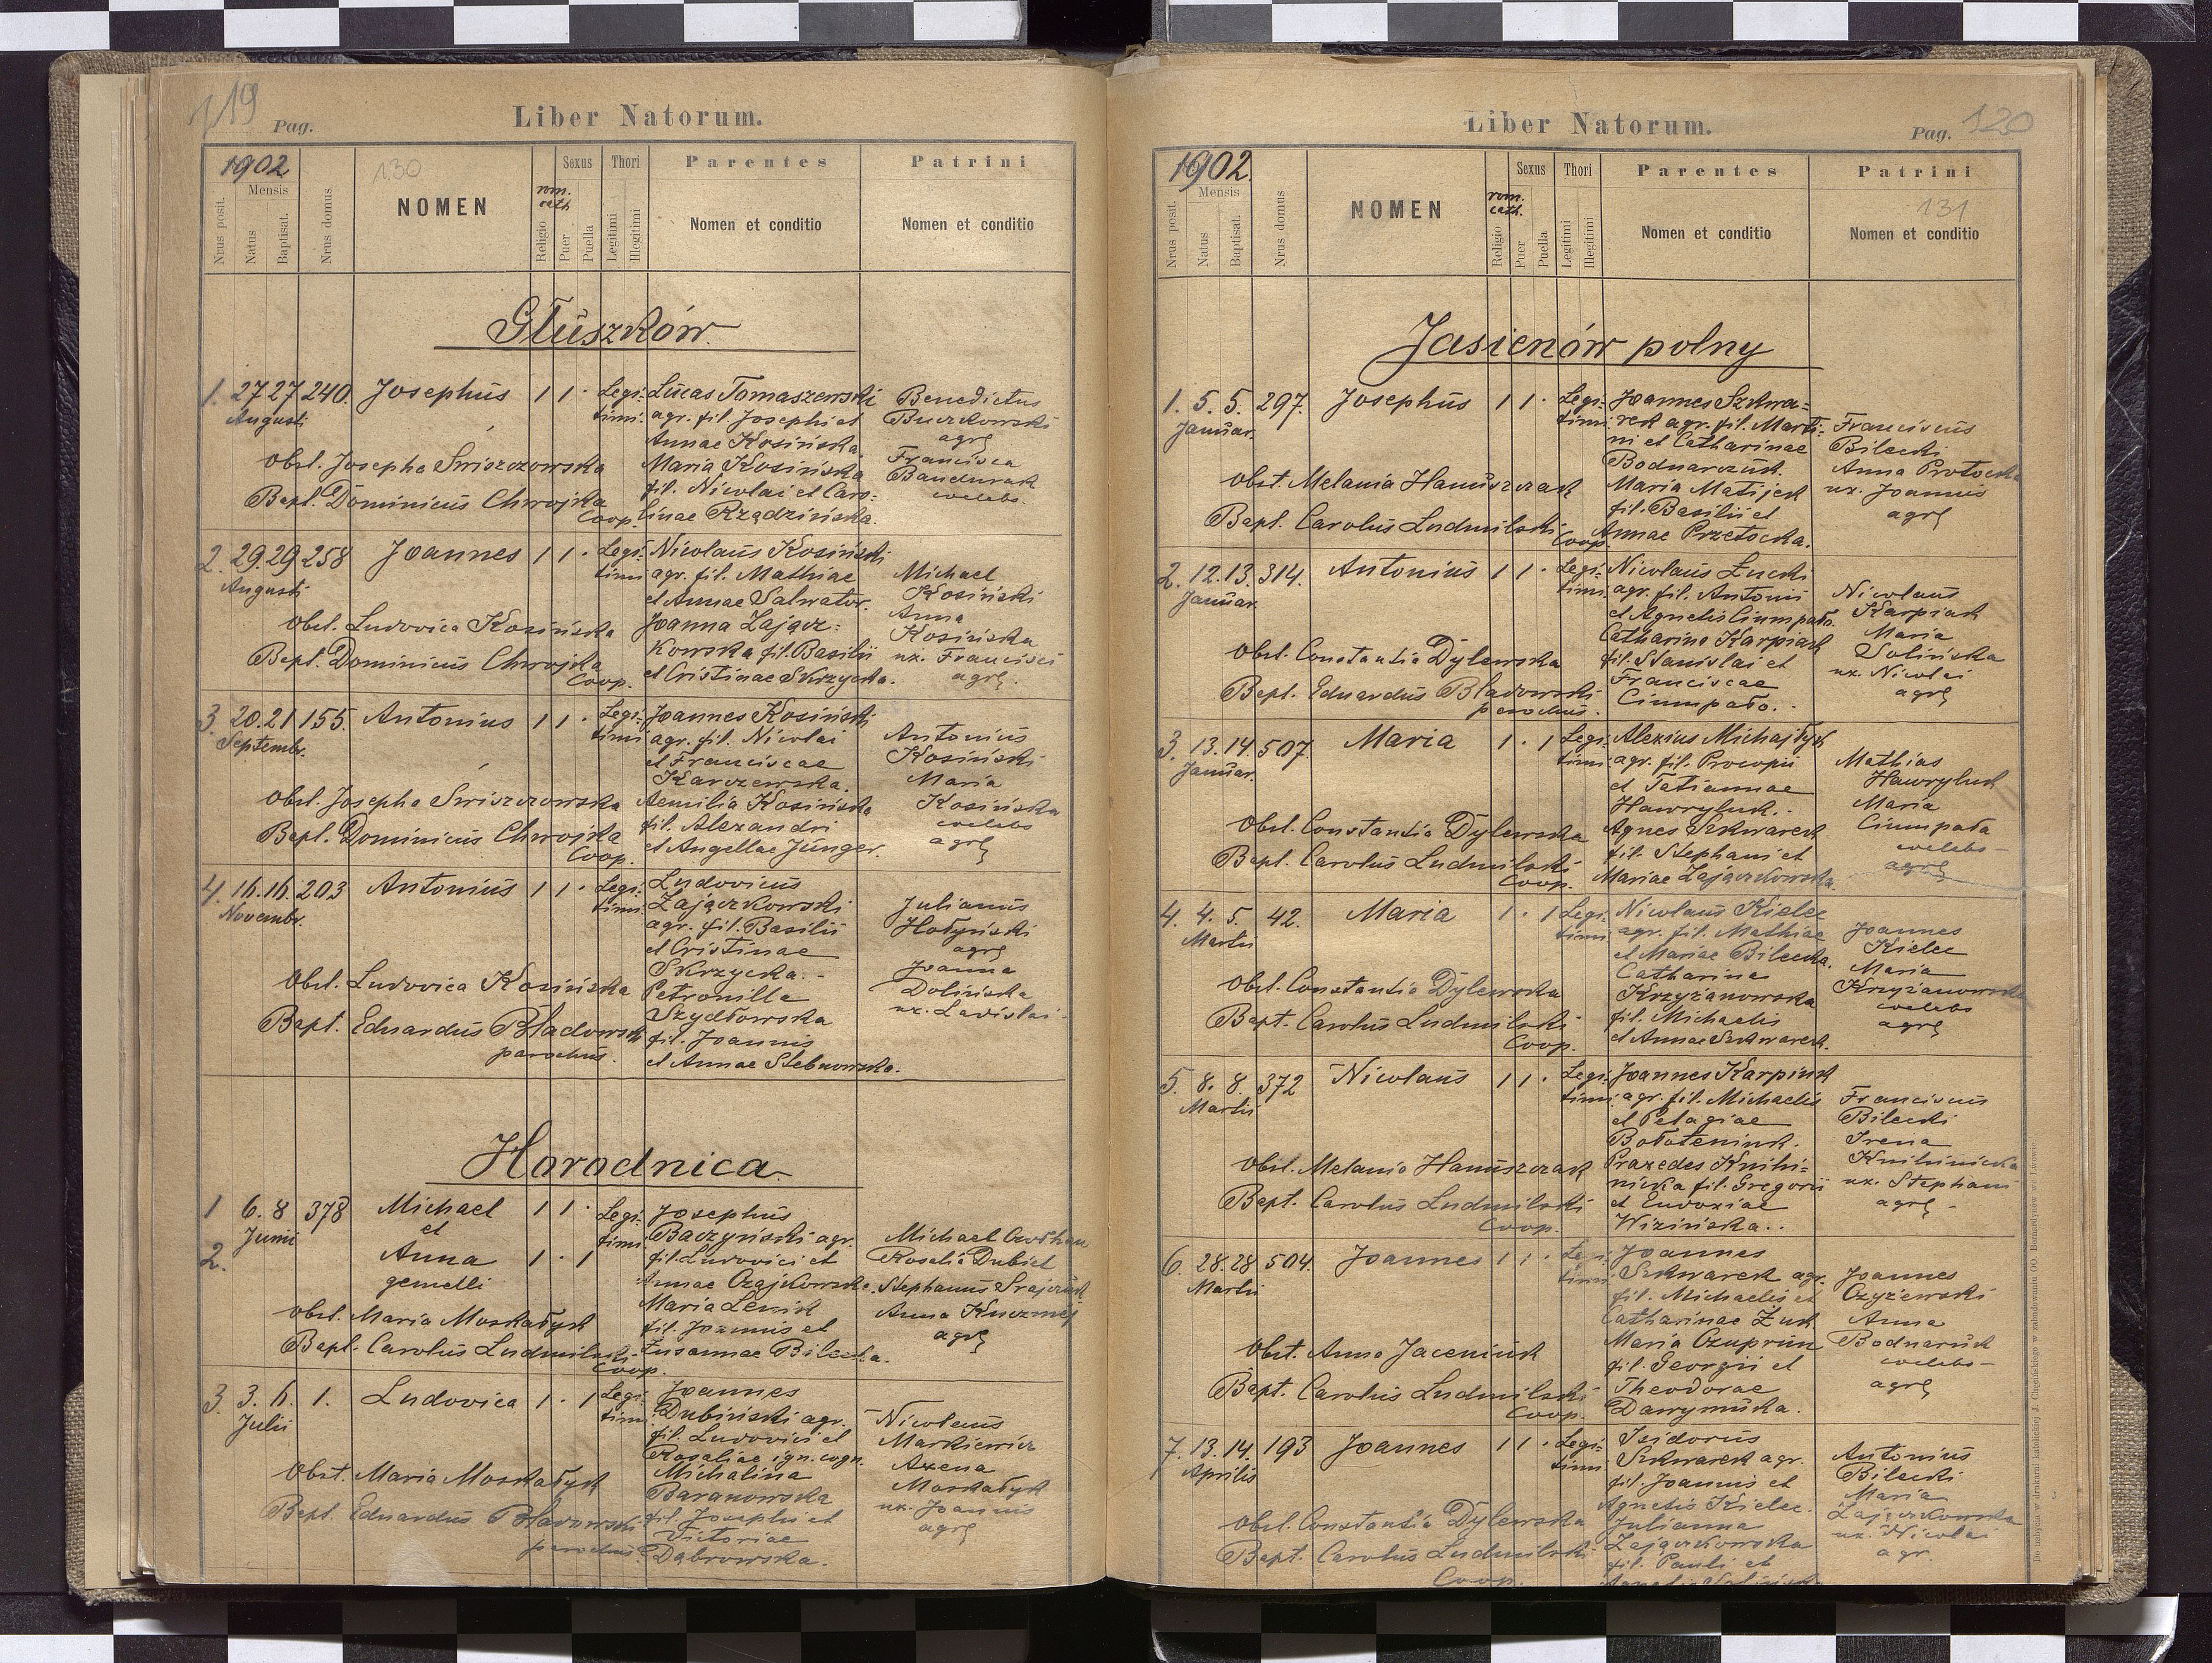 119
Pag.
Liber Natorum.
1902
130
Nrus posit.
Mensis
Natus
Baptisat.
Nrus domus
NOMEN
rom. cath
Religio
Sexus
Puer
Puella
Thori
Legitimi
Illegitimi
Parentes
Nomen et conditio
Patrini
Nomen et conditio
Głuszków.
1. 27 27 240. Josephus 1 1 · Legi:
Augusti
timi.
Lucas Tomaszewski
agr. fil. Josephi et
Annae Kosińska.
Maria Kosińska
fil. Nicolai et Caro:
linae Rządzińska.
Benedictus
Buczkowski
agrę
Francisca
Bandurak
coelebs.
Obst. Josepha Swiszczowska
Bapt. Dominicus Chwojka
Coop.
2. 29. 29 258 Joannes 1 1 · Legi:
Augusti
timi
Nicolaus Kosiński
agr. fil. Mathiae
et Annae Salwator.
Joanna Zającz:
kowska fil. Basilii
et Cristinae Skrzycka.
Michael
Kosiński
Anna
Kosińska
ux. Francisci
agrę.
Obst. Ludovica Kosińska
Bapt. Dominicus Chwojka
Coop.
3. 20. 21 155. Antonius 1 1 · Legi:
Septembr.
timi
Joannes Kosiński
agr. fil. Nicolai
et Franciscae
Karczewska.
Aemilia Kosińska
fil. Alexandri
et Angellae Junger.
Antonius
Kosiński
Maria
Kosińska
coelebs
agrę
Obst. Josepha Swiszczowska
Bapt. Dominicus Chwojka
Coop.
4. 16. 16. 203 Antonius 1 1 · Legi:
Novembr.
timi.
Ludovicus
Zajączkowski
agr. fil. Basilii
et Cristinae
Skrzycka. -
Petronilla
Szydłowska
fil. Joannis
et Annae Stebnowska.
Julianus
Hołyński
agrę
Joanna
Dolińska
ux. Ladislai -
Obst. Ludovica Kosińska
Bapt. Eduardus Bładowski
parochus.
Horodnica.
1 6. 8 378 Michael 1 1 · Legi:
Junii
timi
et
2. Anna 1 · 1
gemelli
Josephus
Baczyński agr.
fil. Ludovici et
Annae Czajkowska.
Maria Lenik
fil. Joannis et
Zusannae Bilecka.
Michael
Rosalia Dubiel
Stephanus
Anna
agrę
Obst. Maria Moskałyk
Bapt. Carolus Ludmilski
Coop.
3. 3. 6. 1. Ludovica 1 · 1 Legi:
Julii
timi
Joannes
Dubiński agr.
fil. Ludovici et
Rosaliae ign. cogn.
Michalina
Baranowska
fil. Josephi et
Victoriae
Dąbrowska.
Nicolaus
Markiewicz
Axena
Moskałyk
ux. Joannis
agrę
Obst. Maria Moskałyk
Bapt. Eduardus Bładowski
parochus.
Liber Natorum.
Pag. 120
1902.
Nrus posit.
Mensis
Natus
Baptisat.
Nrus domus
NOMEN
rom. cath.
Religio
Sexus
Puer
Puella
Thori
Legitimi
Illegitimi
Parentes
Nomen et conditio
Patrini
131
Nomen et conditio
Jasienów polny
1. 5. 5. 297. Josephus 1 1 · Legi:
Januar.
timi
Joannes Szkwa=
rek agr. fil. Marti:
ni et Catharinae
Bodnarczuk.
Maria Matijek
fil. Basilii et
Annae Przetocka.
Franciscus
Bilecki
Anna Protocka
ux. Joannis
agrę
Obst. Melania Hanuszczak
Bapt. Carolus Ludmilski
Coop.
2. 12. 13. 314. Antonius 1 1 · Legi:
Januar.
timi.
Nicolaus Łucki
agr. fil. Antonii
et Agnetis Ciumpało.
Catharina Karpiak
fil. Stanislai et
Franciscae
Ciumpało. -
Nicolaus
Karpiak
Maria
Solińska
ux. Nicolai
agrę
Obst. Constantia Dylewska
Bapt. Eduardus Bładowski
parochus.
3. 13. 14. 507. Maria 1 · 1 Legi:
Januar.
timi
Alexius Michajłyk
agr. fil. Procopii
et Tatiannae
Hawryluk. -
Agnes Szkwarek
fil. Stephani et
Mariae Zajączkowska.
Mathias
Hawryluk
Maria
Ciumpała
coelebs -
agrę
Obst. Constantia Dylewska
Bapt. Carolus Ludmilski
Coop.
4. 4. 5. 42. Maria 1 · 1 Legi:
Martii
timi
Nicolaus Kielec
agr. fil. Mathiae
et Mariae Bilecka.
Catharina
Krzyżanowska
fil. Michaelis
et Annae Szkwarek.
Joannes
Kielec
Maria
Krzyżanowska
coelebs
agrę
Obst. Constantia Dylewska
Bapt. Carolus Ludmilski
Coop.
5. 8. 8. 372 Nicolaus 1 1 · Legi:
Martii
timi.
Joannes Karpiuk
agr. fil. Michaelis
et Pelagiae
Bołoteniuk.
Praxedes Knihi=
nicka fil. Gregorii
et Eudoxiae
Wizińska. .
Franciscus
Bilecki
Irena
Knihinicka
ux. Stephani
agrę -
Obst. Melania Hanuszczak
Bapt. Carolus Ludmilski
Coop.
6. 28. 28 504. Joannes 1 1 · Legi:
Martii
timi
Joannes
Szkwarek agr.
fil. Michaelis et
Catharinae Żuk
Maria Czuprun
fil. Georgii et
Theodorae
Darrymuka.
Joannes
Czyżewski
Anna
Bodnaruk
coelebs -
agrę
Obst. Anna Jaceniuk
Bapt. Carolus Ludmilski
Coop.
7. 13. 14. 193 Joannes 1 1 · Legi:
Aprilis
timi
Isidorus
Szkwarek agr.
fil. Joannis et
Agnetis Kielec.
Julianna
Zajączkowska
fil. Pauli et
Antonius
Bilecki
Maria
Zajączkowska
ux. Nicolai
agr.
Obst. Constantia Dylewska
Bapt. Carolus Ludmilski
Coop.